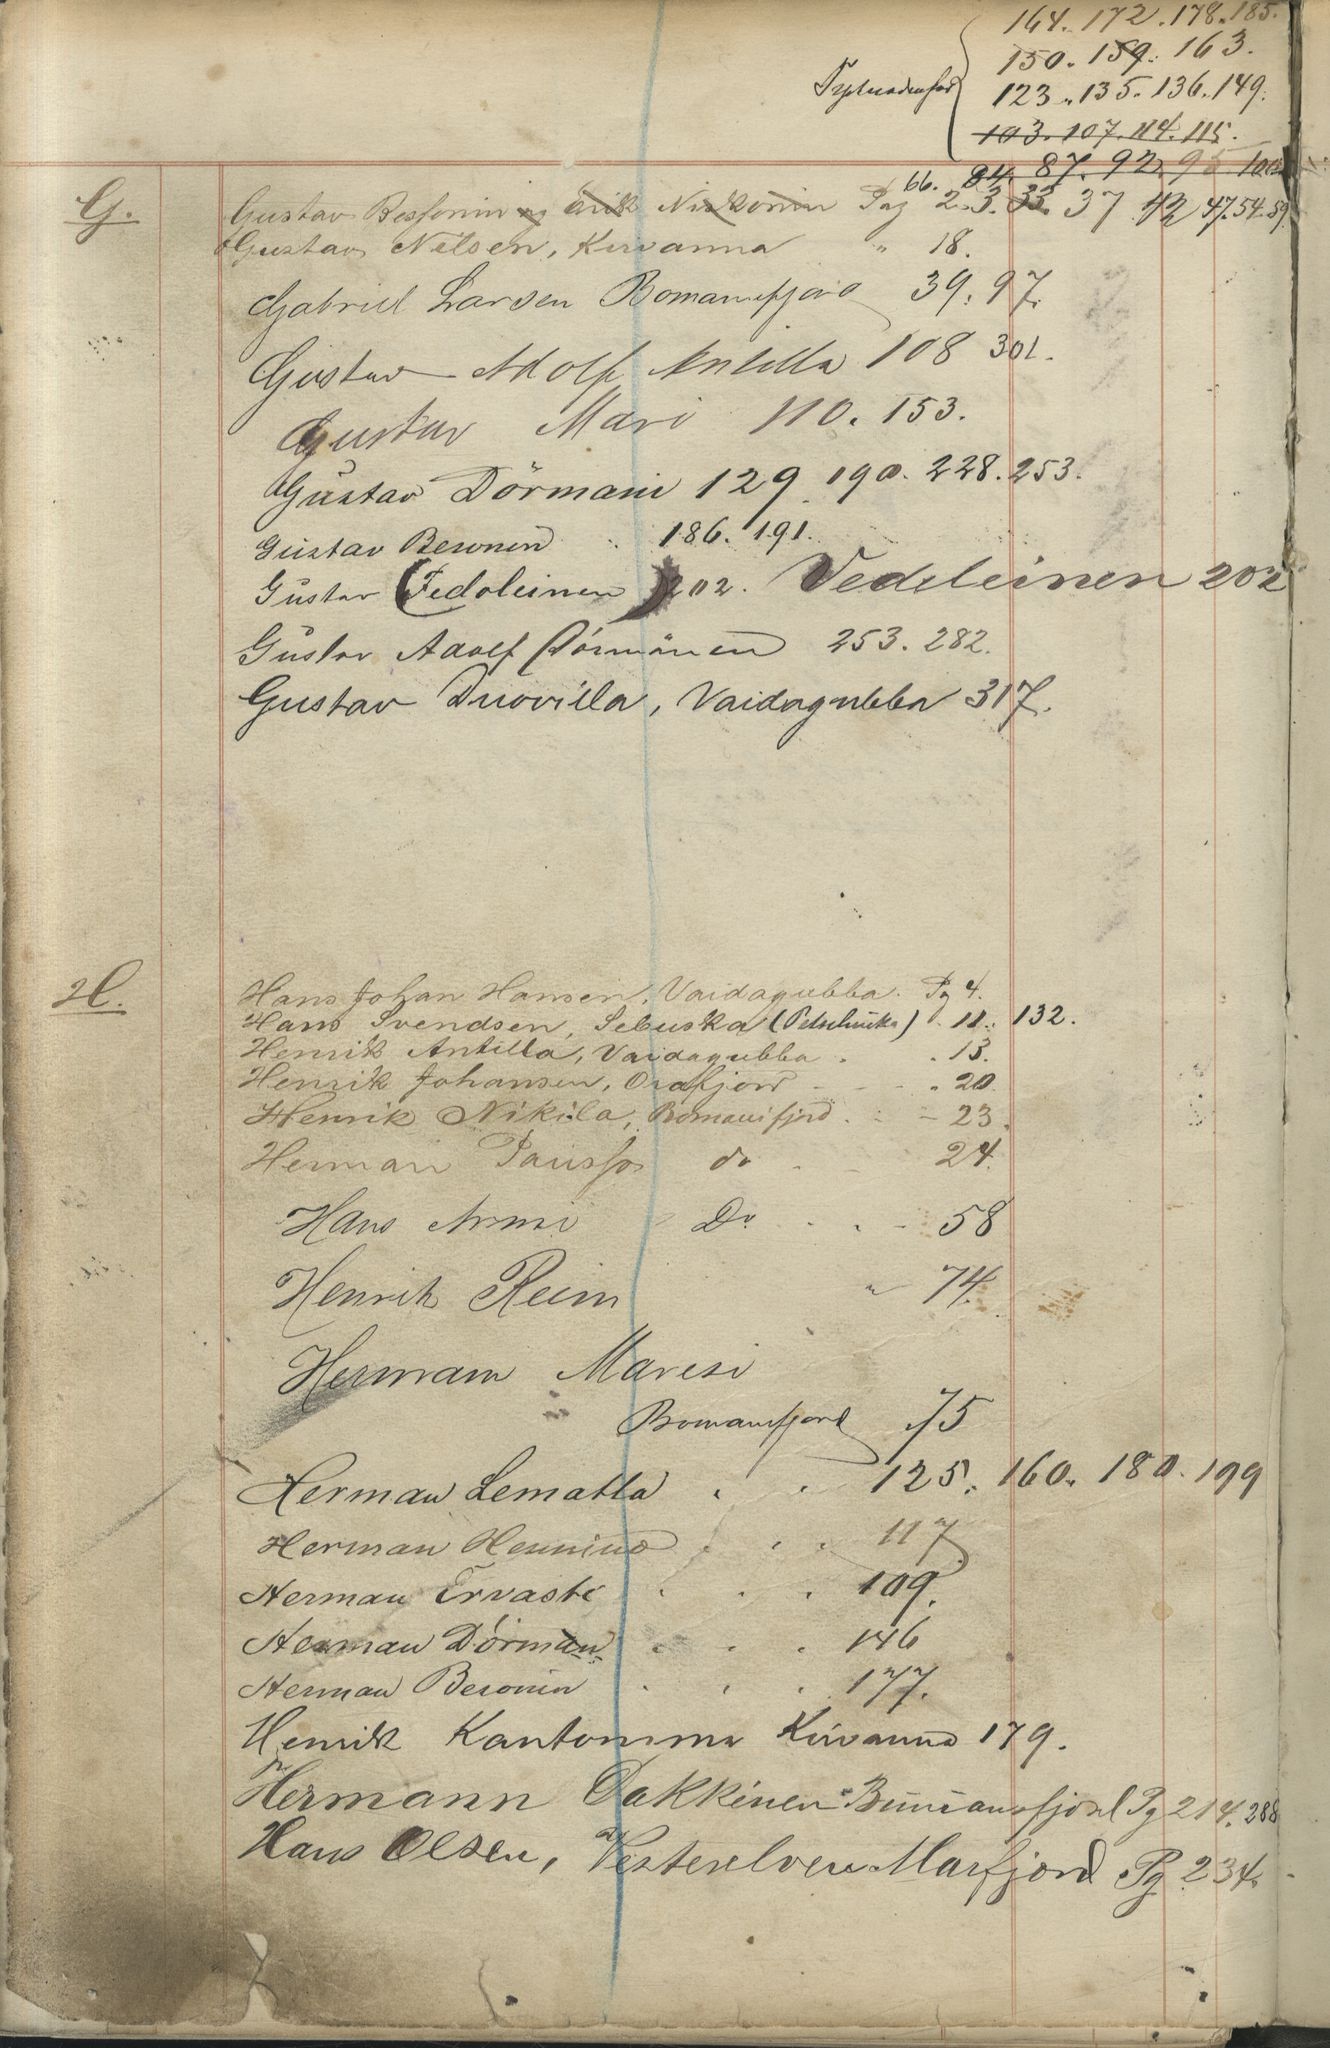 164. 172. 178. 185.
150. 159. 163.
123. 135. 136. 149.
103. 107. 114. 115.
66. 84. 87. 92. 95
G. Gustav Bessonin og Erik Niskonin Pag 2. 3. 33. 37 42 47. 54. 59
Gustav Nilsen, Kervanna " 18.
Gabriel Larsen Bomansfjord 39. 97.
Gustav Adolf Antilla 108 301.
Gustav Mari 110. 153.
Gustav Dörmani 129. 190. 228. 253.
Gustav Besonen 186. 191.
Gustav (Fedoleinen) 202. Vedeleinen 202
Gustav Adolf Dörmänen 253. 282.
Gustav Duovilla, Vaidagubba 317.
H. Hans Johan Hansen, Vaidagubba. Pg 4.
Hans Svendsen, Sebuska (Petschinka) . 11. 132.
Henrik Antilla, Vaidagubba . . 13.
Henrik Johansen, Orafjord - - . 20.
Henrik Nikila, Bomansfjord . - - 23.
Herman do . - 24.
Hans Armi Do . . - 58
Henrik Reim " 74.
Hermann Maresi
Bomansfjord 75
Herman Lematta . . 125. 160. 180. 199
Herman Hennino . . . 117
Herman Ervasti . . . 109.
Herman Dörman . . . 146
Herman Beronin . . . 177.
Henrik Kantomma Kirvanna 179.
Hermann Dakkinen Bumansfjord Pg 214. 288
Hans Olsen, Vesterelven Marfjord Pg 234.